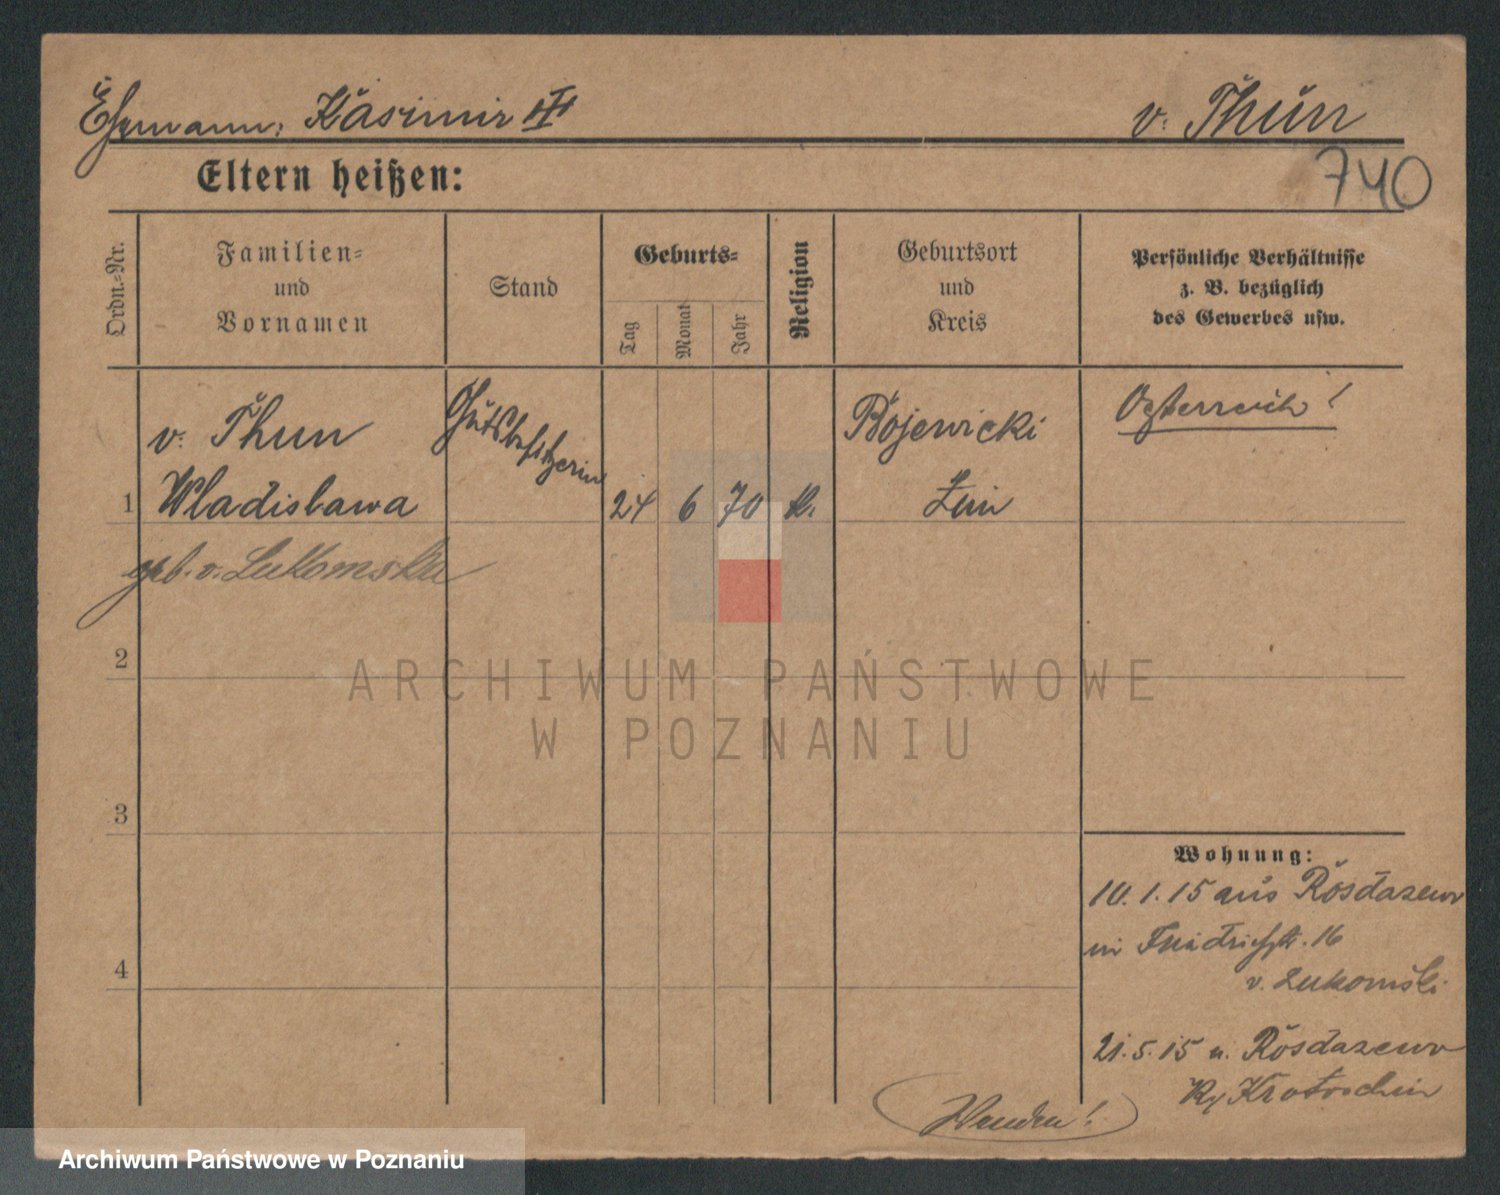 Ehemann: Kasimir III v. Thun
740
Eltern heißen:
Ordn.-Nr.
Familien-
und
Vornamen
Stand
Geburts-
Tag
Monat
Jahr
Religion
Geburtsort
und
Kreis
Persönliche Verhältnisse
z. B. bezüglich
des Gewerbes usw.
v. Thun Gutsbesitzerin Bojewicki Österreich!
1 Wladislawa 24 6 70 k. Znin
geb. v. Lukomska
2
ARCHIWUM PAŃSTWOWE
W POZNANIU
3
Wohnung:
10.1.15 aus Rosdazew
in Friedrichstr. 16
v. Lukomski
4
21.5.15 n. Rosdazew
Krotoschin
Wenden!
Archiwum Państwowe w Poznaniu